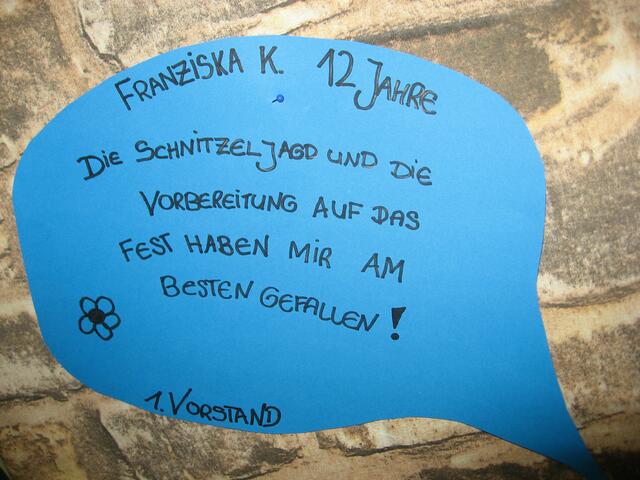 FRANZISKA K. 12 JAHRE
DIE SCHNITZELJAGD UND DIE
VORBEREITUNG AUF DAS
FEST HABEN MIR AM
BESTEN GEFALLEN!
1. VORSTAND